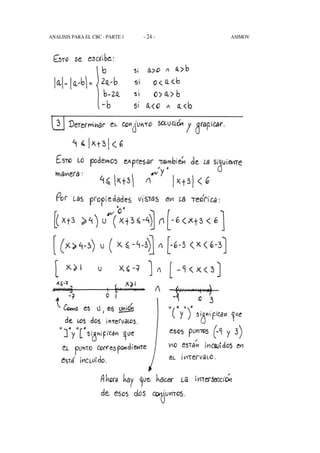 ANALISIS PARA EL CBC - PARTE 1 - 24 - ASIMOV
Esto se escribe:
|a|-|a-b|= { b si a>0 ∧ a>b
2a-b si 0<a<b
b-2a si 0>a>b
-b si a<0 ∧ a<b
3 Determinar el conjunto solución y graficar.
4 ≤ |x+3| < 6
Esto lo podemos expresar también de la siguiente
manera: 4 ≤ |x+3| ∧ "y" |x+3| < 6
Por las propiedades vistas en la teórica:
[(x+3 ≥ 4) ∪ "o" (x+3 ≤ -4)] ∩ [-6 < x+3 < 6]
[(x ≥ 4-3) ∪ (x ≤ -4-3)] ∩ [-6-3 < x < 6-3]
[x ≥ 1 ∪ x ≤ -7] ∩ [-9 < x < 3]
x≤-7 x≥1 ∩
-7 0 1 -9 0 3
Como es ∪, es unión
de los dos intervalos.
"]" y "[" significan que
el punto correspondiente
está incluido.
"(" y ")" significan que
esos puntos (-9 y 3)
no están incluidos en
el intervalo.
Ahora hay que hacer la intersección
de esos dos conjuntos.